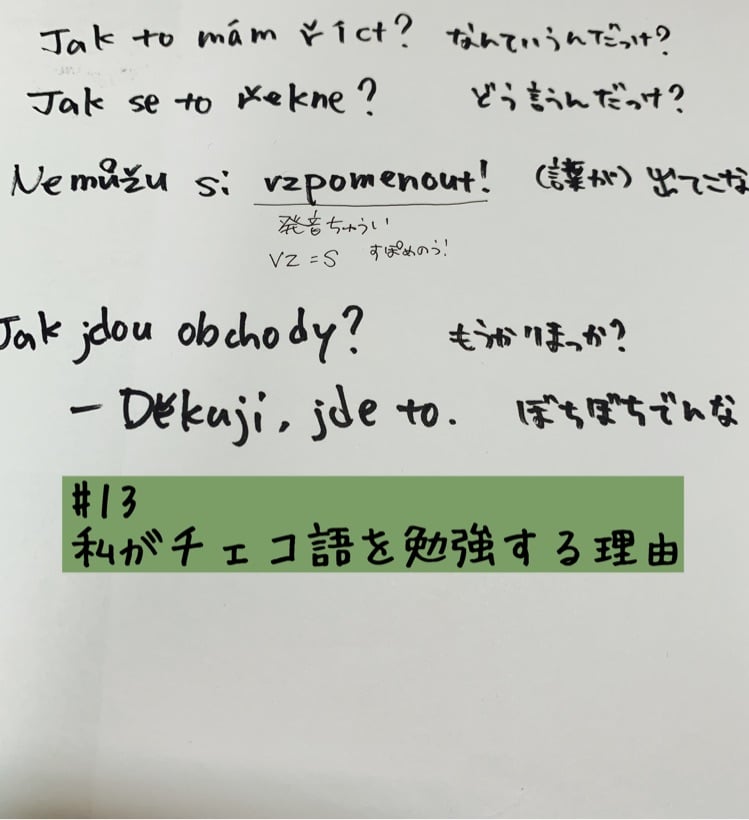 Jak to mám říct? なんていうんだっけ?
Jak se to řekne? どう言うんだっけ?
Nemůžu si vzpomenout! (言葉が) 出てこな
発音ちゅうい
vz = s すぽめのう!
Jak jdou obchody? もうかりまっか?
- Děkuji, jde to. ぼちぼちでんな
#13
私がチェコ語を勉強する理由